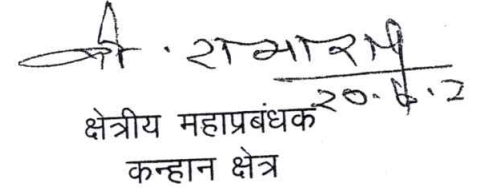 २०.६.२
क्षेत्रीय महाप्रबंधक
कन्हान क्षेत्र